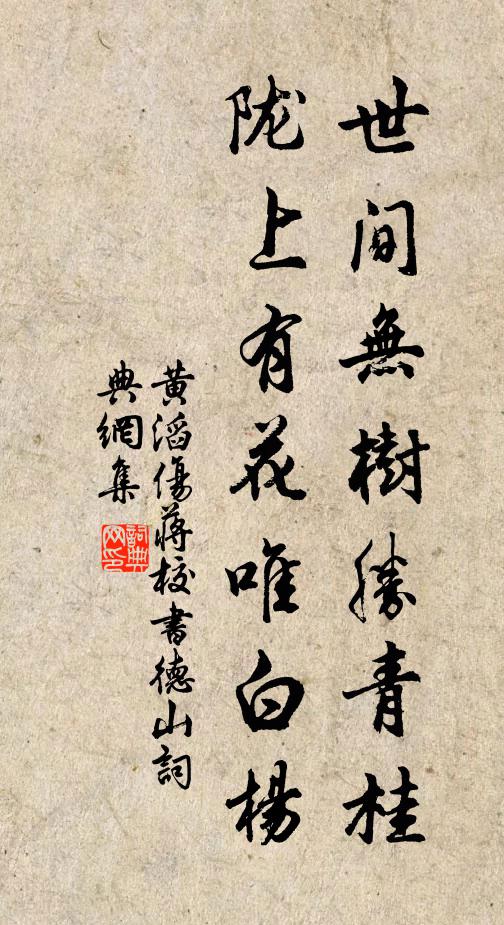 世间無樹勝青桂
陇上有花唯白楊
黄滔傷蔣校書德山詞
典網集
詞典网印